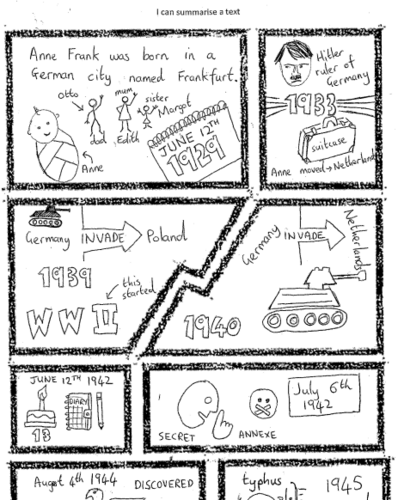 I can summarise a text
Anne Frank was born in a
German city named Frankfurt.
otto
mum
sister
Margot
dad
Edith
Anne
JUNE 12TH
1929
Hitler
ruler of
Germany
1933
suitcase
Anne moved → Netherlands
Germany INVADE Poland
1939
this
started
WW II
Germany INVADE Netherlands
1940
JUNE 12TH 1942
DIARY
13
July 6th
1942
SECRET ANNEXE
Augst 4th 1944 DISCOVERED
typhus
1945